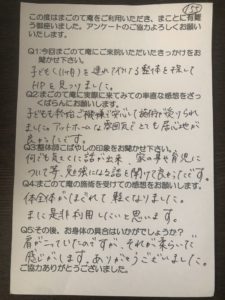 この度はまごて庵をご利用いただき、まことに有難
う御座いました。アンケートのご協力よろしくお願い
いたします。
Q1:今回まごて庵にご来院いただいたきっかけをお
聞かせ下さい。
子ども(11ヶ月)を連れて行ける整体を探して
HPを見つけました。
Q2:まごて庵に実際に来てみての率直な感想をざっ
くばらんにお願いします。
子どもも終始ご機嫌で安心して施術が受けられ
ました。アットホームな雰囲気でとても居心地が
良かったです。
Q3:整体師こばやしの印象をお聞かせ下さい。
何でも気さくに話が出来、家の事や育児に
ついて等、勉強になる話を聞けて良かったです。
Q4:まごて庵の施術を受けての感想をお願いします。
体全体がほぐれて軽くなりました。
また是非利用したいと思います。
Q5:その後、お身体の具合はいかがでしょうか?
肩がこっていたのですが、それが柔らいだ
感じがします。ありがとうございました。
ご協力ありがとうございました。